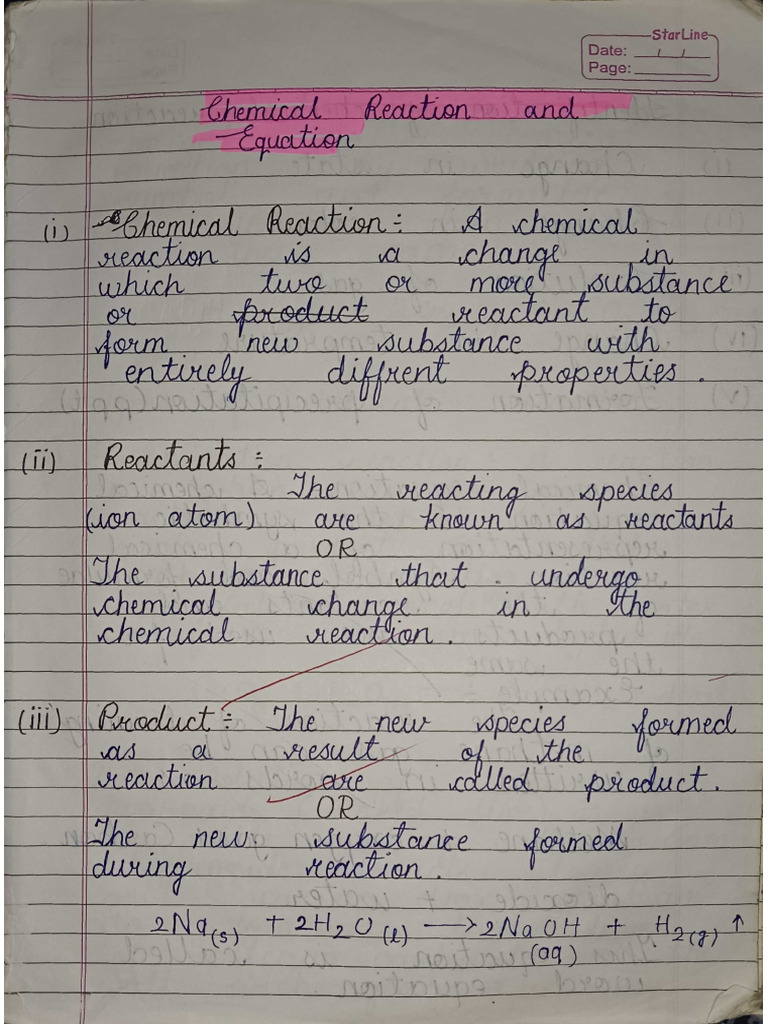 StarLine
Date:
Page:
Chemical Reaction and
Equation
(i) Chemical Reaction :- A chemical
reaction is a change in
which two or more substance
or product reactant to
form new substance with
entirely diffrent properties.
(ii) Reactants :-
The reacting species
(ion atom) are known as reactants
OR
The substance that undergo
chemical change in the
chemical reaction.
(iii) Product :- The new species formed
as a result of the
reaction are called product.
OR
The new substance formed
during reaction.
2Na(s) + 2H2O(l) → 2NaOH + H2(g) ↑
(aq)